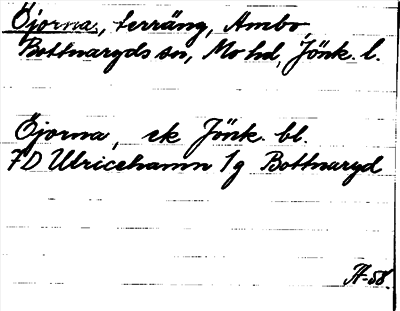 Öjorna, terräng, Ambo
Bottnaryds sn, Mo hd, Jönk. l.
Öjorna, ek Jönk. bl.
7D Ulricehamn 1g Bottnaryd
A-58.